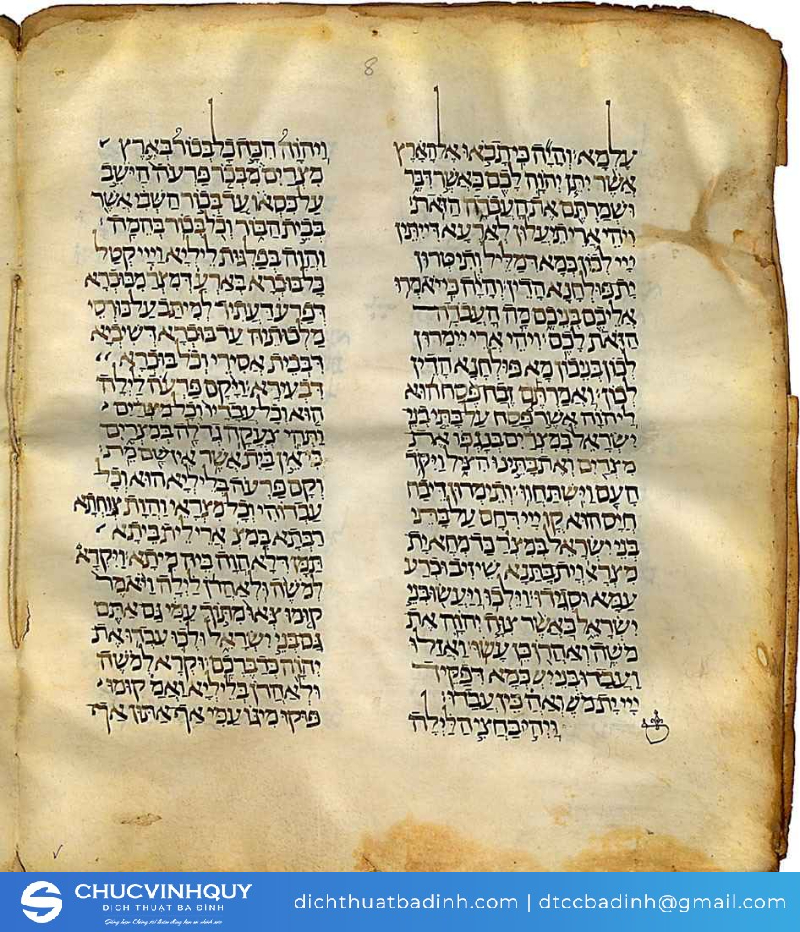 עלמא והיה כי תבאו אל הארץ
אשר יתן יהוה לכם כאשר דבר
ושמרתם את העבדה הזאת
ויהי ארי תיעלון לארעא דייתין
ייי לכון כמא דמליל ותיטרון
ית פולחנא הדין והיה כי יאמרו
אליכם בניכם מה העבדה
הזאת לכם ויהי ארי יימרון
לכון בניכון מא פולחנא הדין
לכון ואמרתם זבח פסח הוא
ליהוה אשר פסח על בתי בני
ישראל במצרים בנגפו את
מצרים ואת בתינו הציל ויקד
העם וישתחוו ותימרון דיבח
חייס הוא קד ייי דחס על בתי
בני ישראל במצר כד מחא ית
מצראי וית בתנא שיזיב וכרע
עמא וסגידו וילכו ויעשו בני
ישראל כאשר צוה יהוה את
משה ואהרן כן עשו ואזלו
ועבדו בני יש כמא דפקיד
ייי ית מש ואה כין עבדו
ויהי בחצי הלילה
ויהוה הכה כל בכור בארץ
מצרים מבכר פרעה הישב
על כסאו עד בכור השבי אשר
בבית הבור וכל בכור בהמה
והוה בפלגות ליליא וייי קטל
כל בוכרא בארעא דמצר מבוכרא
דפרע דעתיד למיתב על כורסי
מלכותיה עד בוכרא דשיביא
דבבית אסירי וכל בוכרא
דבעירא ויקם פרעה לילה
הוא וכל עבדיו וכל מצרים
ותהי צעקה גדלה במצרים
כי אין בית אשר אין שם מת
וקם פרעה בליליא הוא וכל
עבדוהי וכל מצראי והות צוחתא
רבתא במצ ארי לית ביתא
תמן דלא הוה ביה מיתא ויקרא
למשה ולאהרן לילה ויאמר
קומו צאו מתוך עמי גם אתם
גם בני ישראל ולכו עבדו את
יהוה כדברכם וקרא למשה
ולאהרן בליליא ואמ קומו
פוקו מיגו עמי אף אתון אף
8
CHUCVINHQUY
DỊCH THUẬT BA ĐÌNH
dichthuatbadinh.com | dtccbadinh@gmail.com